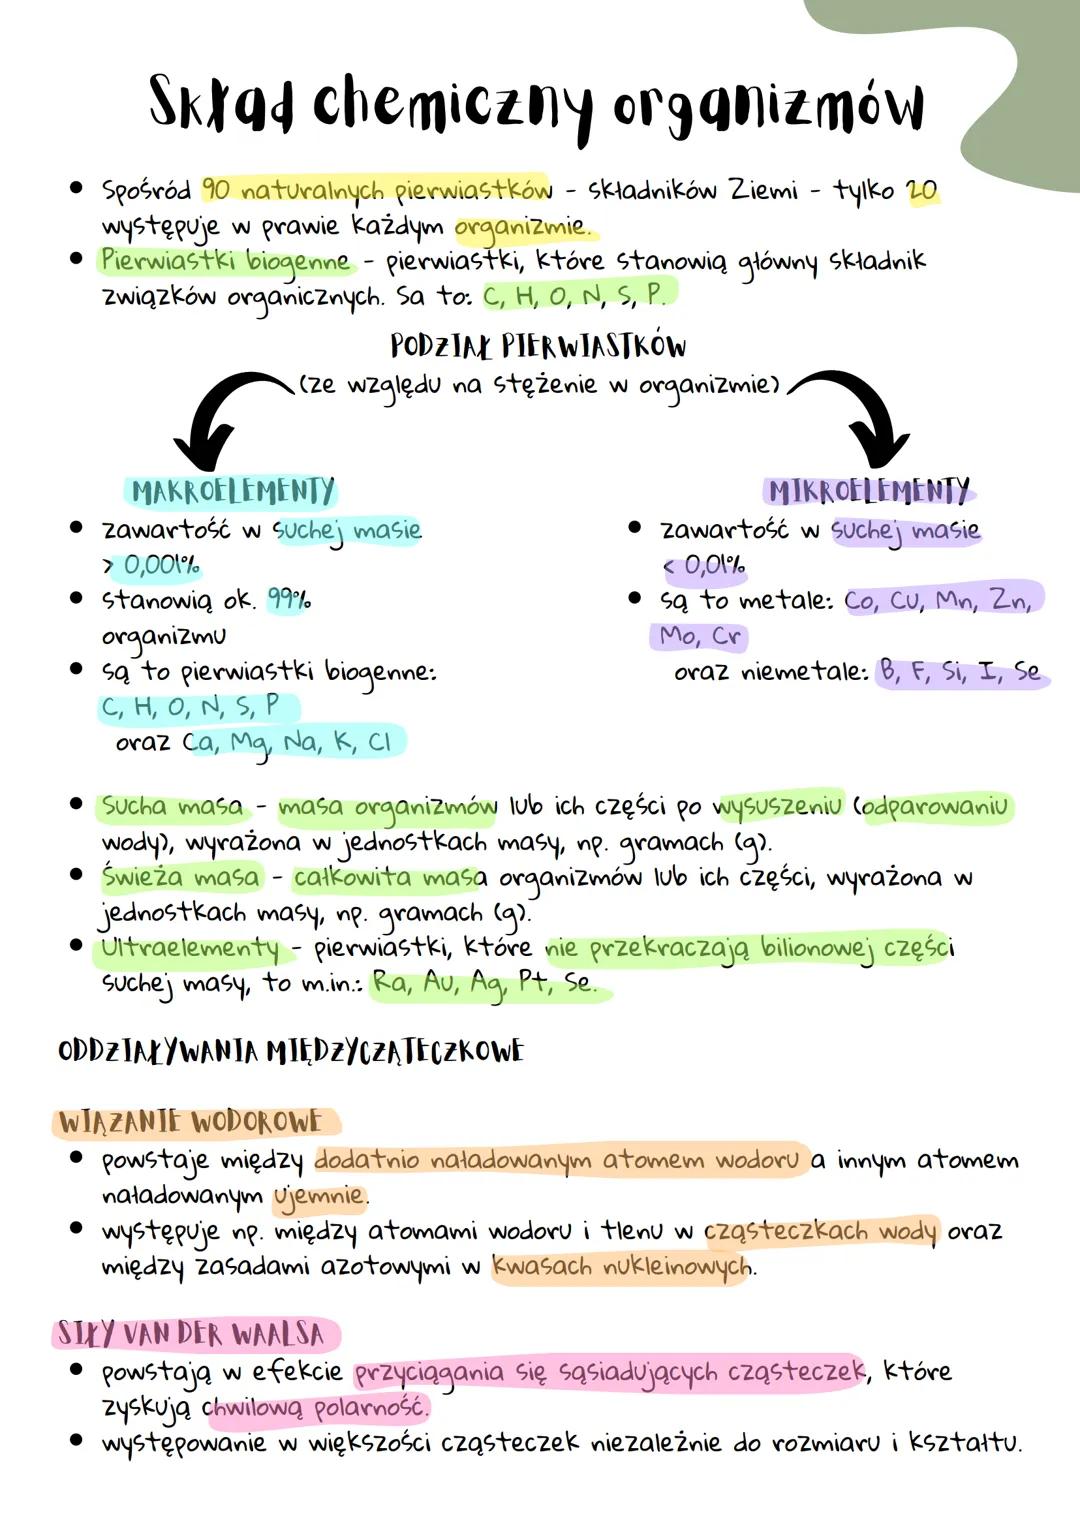 Skład chemiczny organizmów
• Spośród 90 naturalnych pierwiastków - składników Ziemi - tylko 20
występuje w prawie każdym organizmie.
• Pierwiastki biogenne - pierwiastki, które stanowią główny składnik
związków organicznych. Sa to: C, H, O, N, S, P.
PODZIAŁ PIERWIASTKÓW
(ze względu na stężenie w organizmie)
MAKROELEMENTY
• zawartość w suchej masie
> 0,001%
• stanowią ok. 99%
organizmu
• są to pierwiastki biogenne:
C, H, O, N, S, P
oraz Ca, Mg, Na, K, Cl
MIKROELEMENTY
• zawartość w suchej masie
< 0,01%
• są to metale: Co, Cu, Mn, Zn,
Mo, Cr
oraz niemetale: B, F, Si, I, Se
• Sucha masa - masa organizmów lub ich części po wysuszeniu (odparowaniu
wody), wyrażona w jednostkach masy, np. gramach (g).
• Świeża masa - całkowita masa organizmów lub ich części, wyrażona w
jednostkach masy, np. gramach (g).
• Ultraelementy - pierwiastki, które nie przekraczają bilionowej części
suchej masy, to m.in.: Ra, Au, Ag, Pt, Se.
ODDZIAŁYWANIA MIĘDZYCZĄTECZKOWE
WIĄZANIE WODOROWE
• powstaje między dodatnio naładowanym atomem wodoru a innym atomem
naładowanym ujemnie.
• występuje np. między atomami wodoru i tlenu w cząsteczkach wody oraz
między zasadami azotowymi w kwasach nukleinowych.
SIŁY VAN DER WAALSA
• powstają w efekcie przyciągania się sąsiadujących cząsteczek, które
zyskują chwilową polarność.
• występowanie w większości cząsteczek niezależnie do rozmiaru i kształtu.